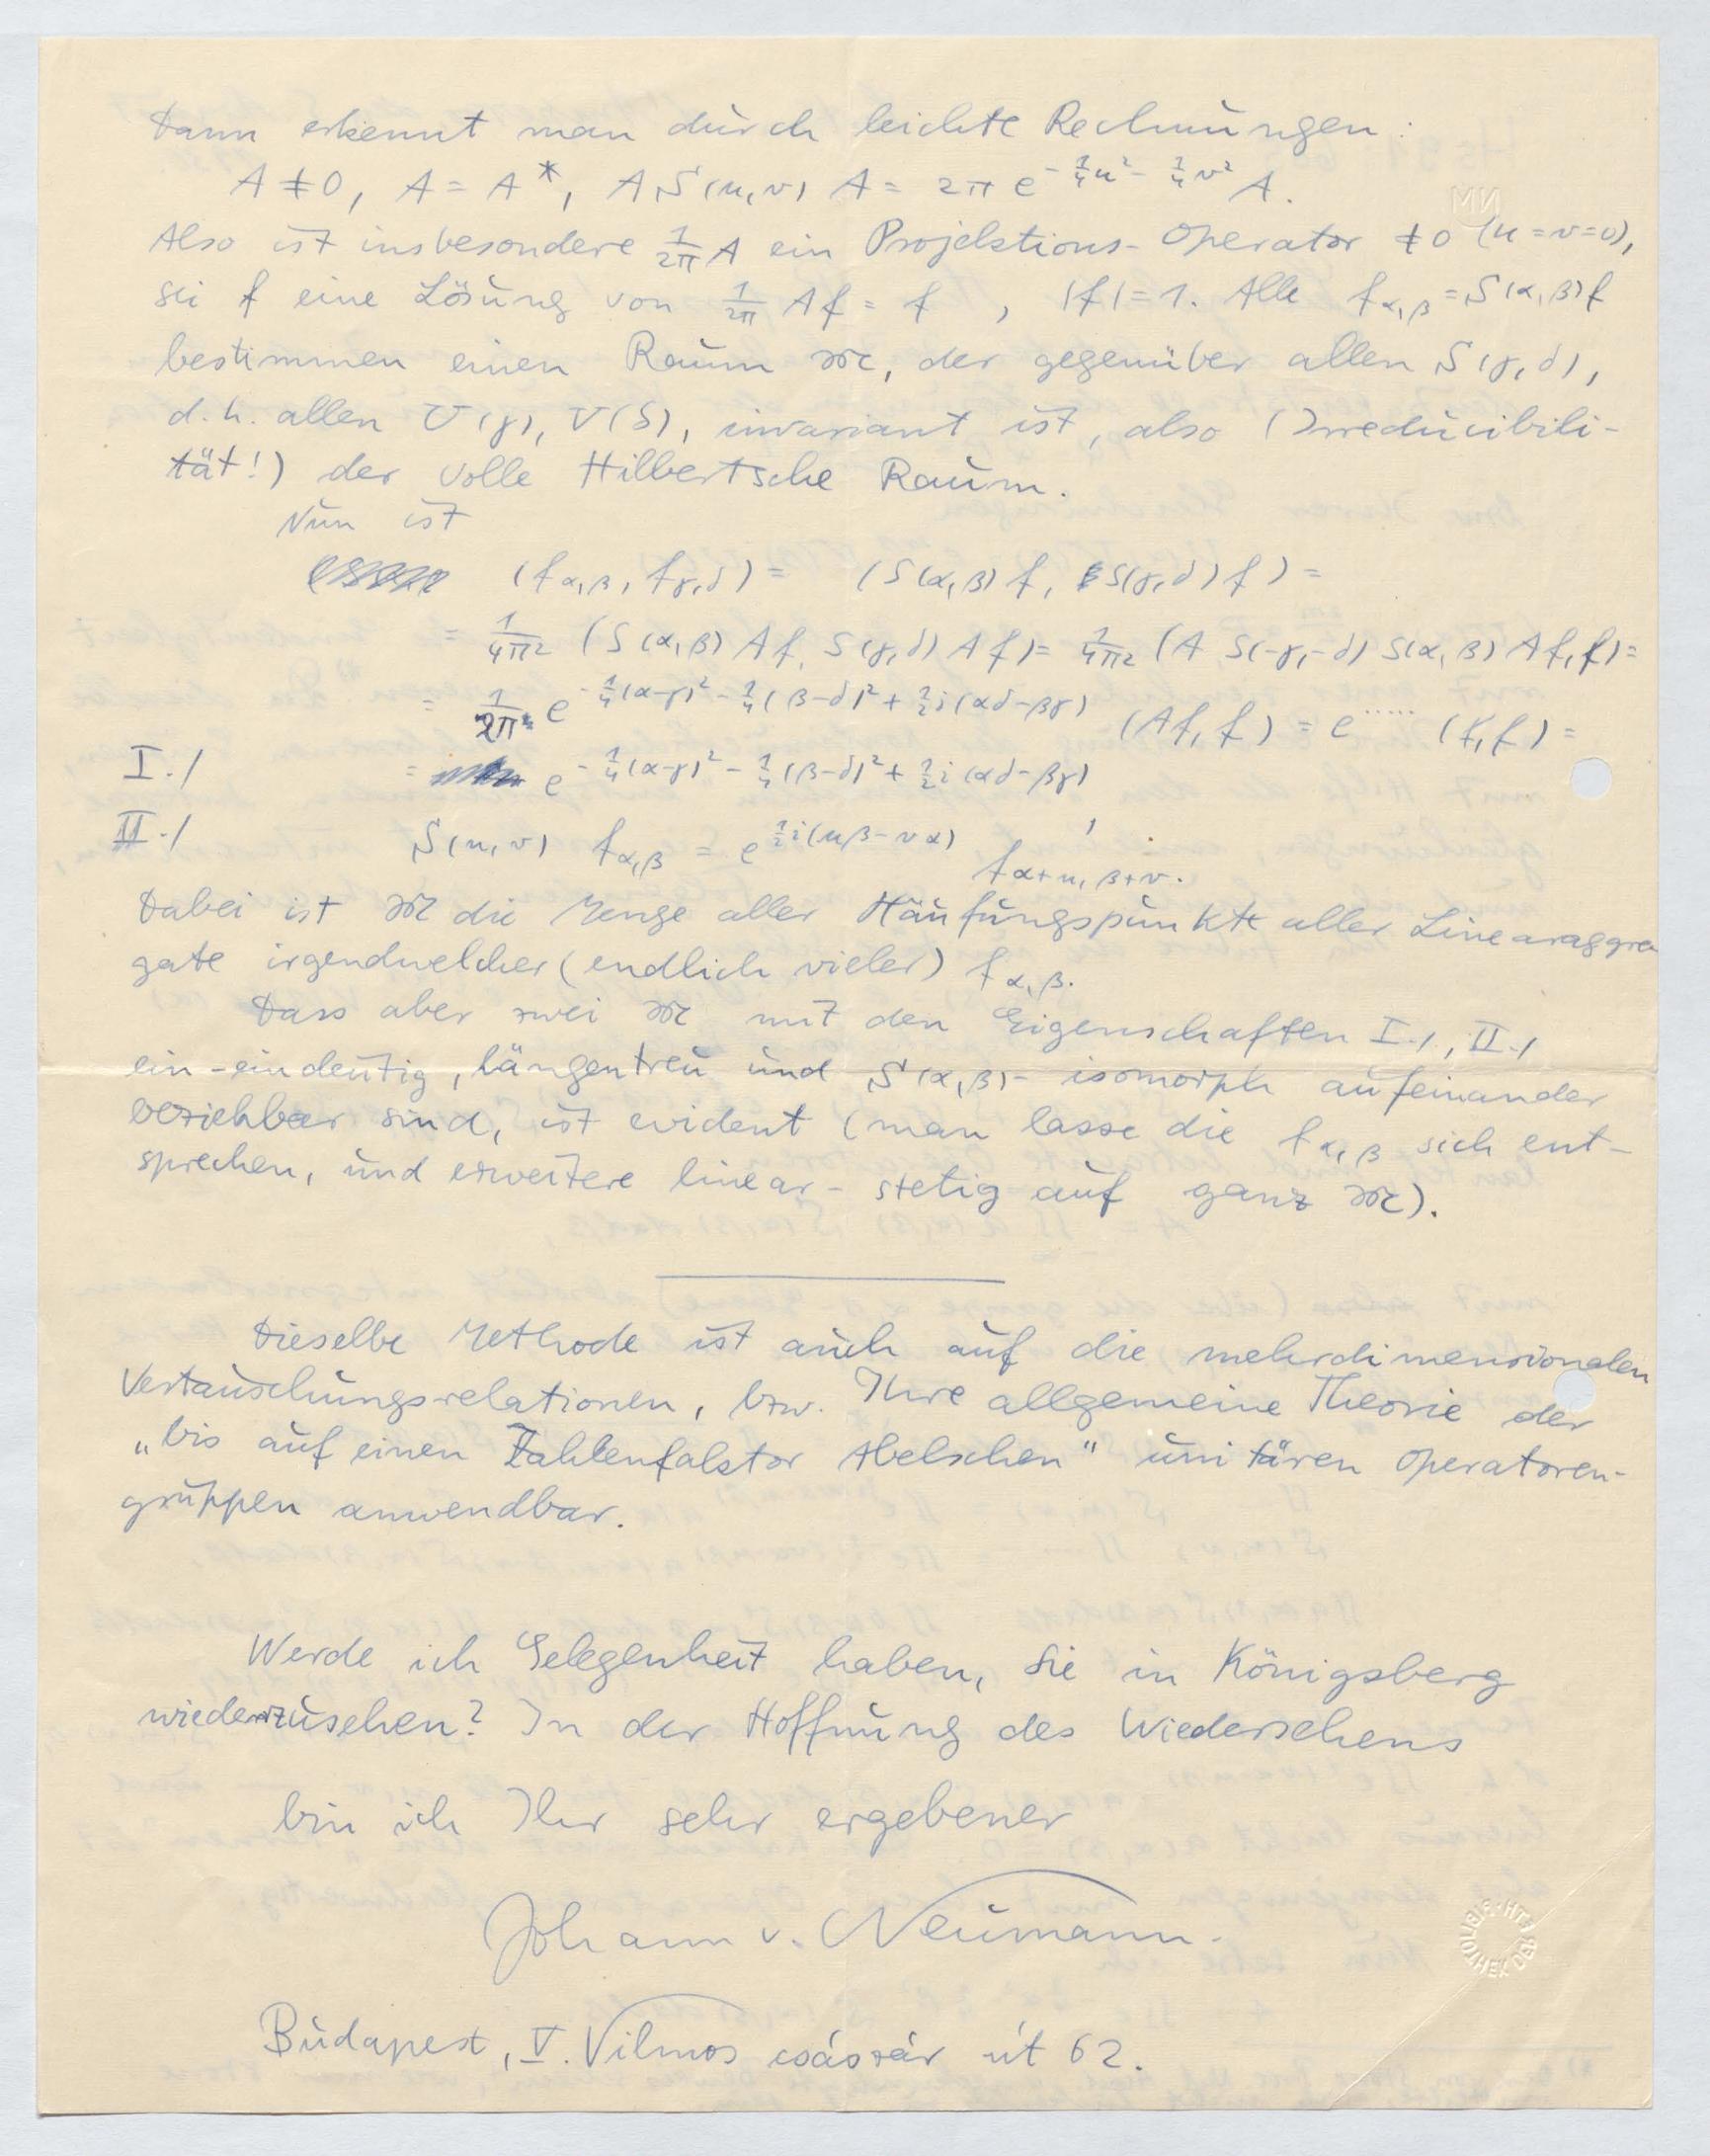 Dann erkennt man durch leichte Rechnungen:
A ≠ 0, A = A*, A S(u,v) A = 2π e^{-¼u² - ¼v²} A.
Also ist insbesondere 1/2π A ein Projektions-Operator ≠ 0 (u=v=0),
sei f eine Lösung von 1/2π Af = f, |f| = 1. Alle f_{α,β} = S(α,β)f
bestimmen einen Raum 𝔐, der gegenüber allen S(γ,δ),
d.h. allen U(γ), V(δ), invariant ist, also (Irreducibili-
tät!) der volle Hilbertsche Raum.
Nun ist
(f_{α,β}, f_{γ,δ}) = (S(α,β)f, S(γ,δ)f) =
= 1/4π² (S(α,β)Af, S(γ,δ)Af) = 1/4π² (A S(-γ,-δ) S(α,β) Af, f) =
= 1/2π e^{-¼(α-γ)² - ¼(β-δ)² + ½i(αδ-βγ)} (Af, f) = e^{.....} (f,f) =
I./ = e^{-¼(α-γ)² - ¼(β-δ)² + ½i(αδ-βγ)},
II./ S(u,v) f_{α,β} = e^{½i(uβ-vα)} f_{α+u, β+v}.
Dabei ist 𝔐 die Menge aller Häufungspunkte aller Linearaggre
gate irgendwelcher (endlich vieler) f_{α,β}.
Dass aber zwei 𝔐 mit den Eigenschaften I./, II./
ein-eindeutig, längentreu und S(α,β)- isomorph aufeinander
beziehbar sind, ist evident (man lasse die f_{α,β} sich ent-
sprechen, und erweitere linear-stetig auf ganz 𝔐).
Dieselbe Methode ist auch auf die mehrdimensionalen
Vertauschungsrelationen, bzw. Ihre allgemeine Theorie der
„bis auf einen Zahlenfaktor Abelschen" unitären Operatoren-
gruppen anwendbar.
Werde ich Gelegenheit haben, Sie in Königsberg
wiederzusehen? In der Hoffnung des Wiedersehens
bin ich Ihr sehr ergebener
Johann v. Neumann.
Budapest, V. Vilmos császár út 62.